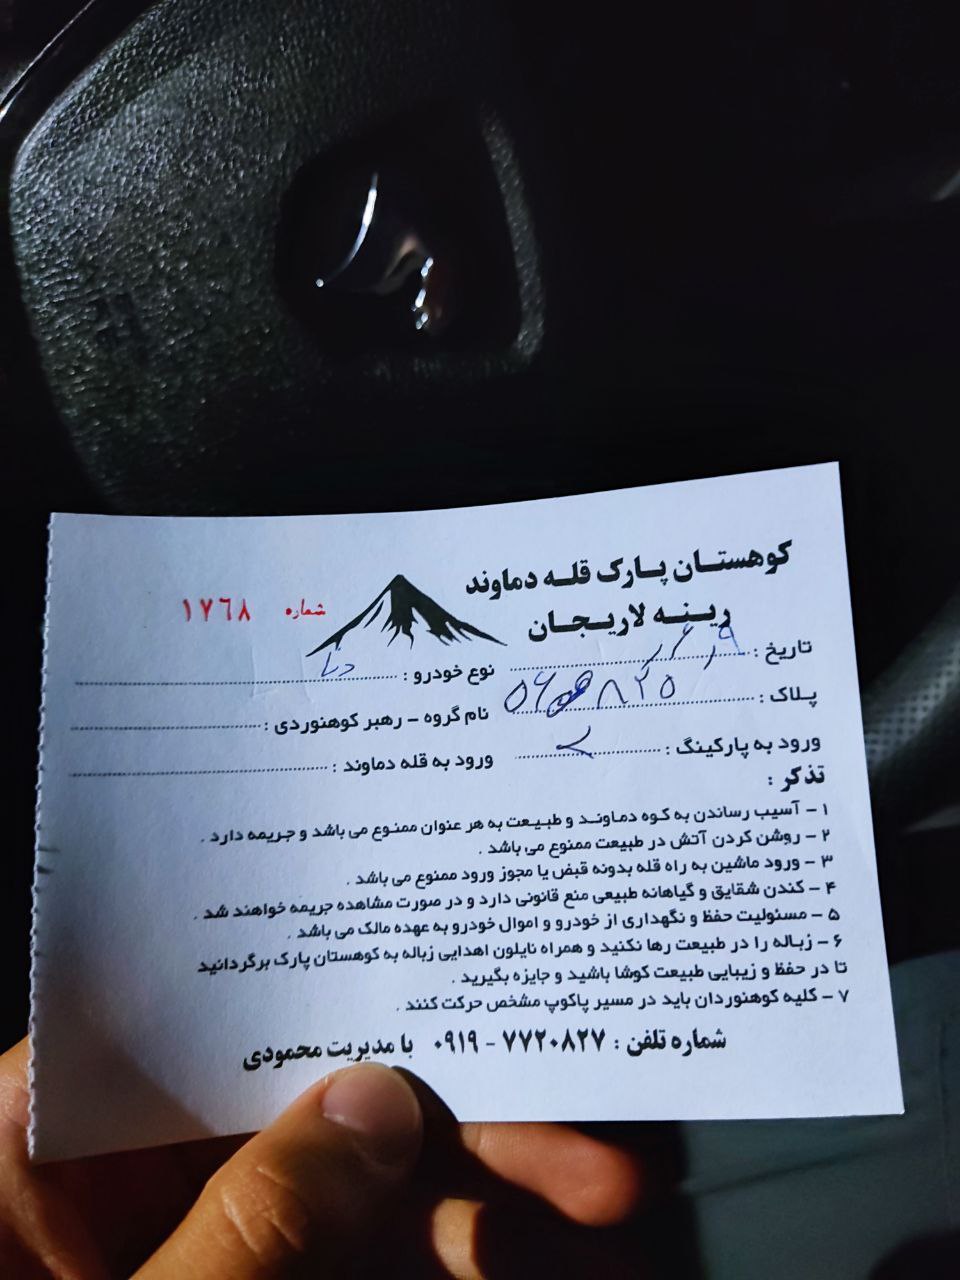 کوهستان پارک قله دماوند
رینه لاریجان
شماره ۱۷۶۸
تاریخ :
نوع خودرو : دنا
پلاک :
نام گروه - رهبر کوهنوردی :
ورود به پارکینگ :
ورود به قله دماوند :
تذکر :
۱ - آسیب رساندن به کوه دماوند و طبیعت به هر عنوان ممنوع می باشد و جریمه دارد .
۲ - روشن کردن آتش در طبیعت ممنوع می باشد .
۳ - ورود ماشین به راه قله بدونه قبض یا مجوز ورود ممنوع می باشد .
۴ - کندن شقایق و گیاهانه طبیعی منع قانونی دارد و در صورت مشاهده جریمه خواهند شد .
۵ - مسئولیت حفظ و نگهداری از خودرو و اموال خودرو به عهده مالک می باشد .
۶ - زباله را در طبیعت رها نکنید و همراه نایلون اهدایی زباله به کوهستان پارک برگردانید
تا در حفظ و زیبایی طبیعت کوشا باشید و جایزه بگیرید .
۷ - کلیه کوهنوردان باید در مسیر پاکوپ مشخص حرکت کنند .
شماره تلفن : ۷۷۲۰۸۲۷ - ۰۹۱۹ با مدیریت محمودی